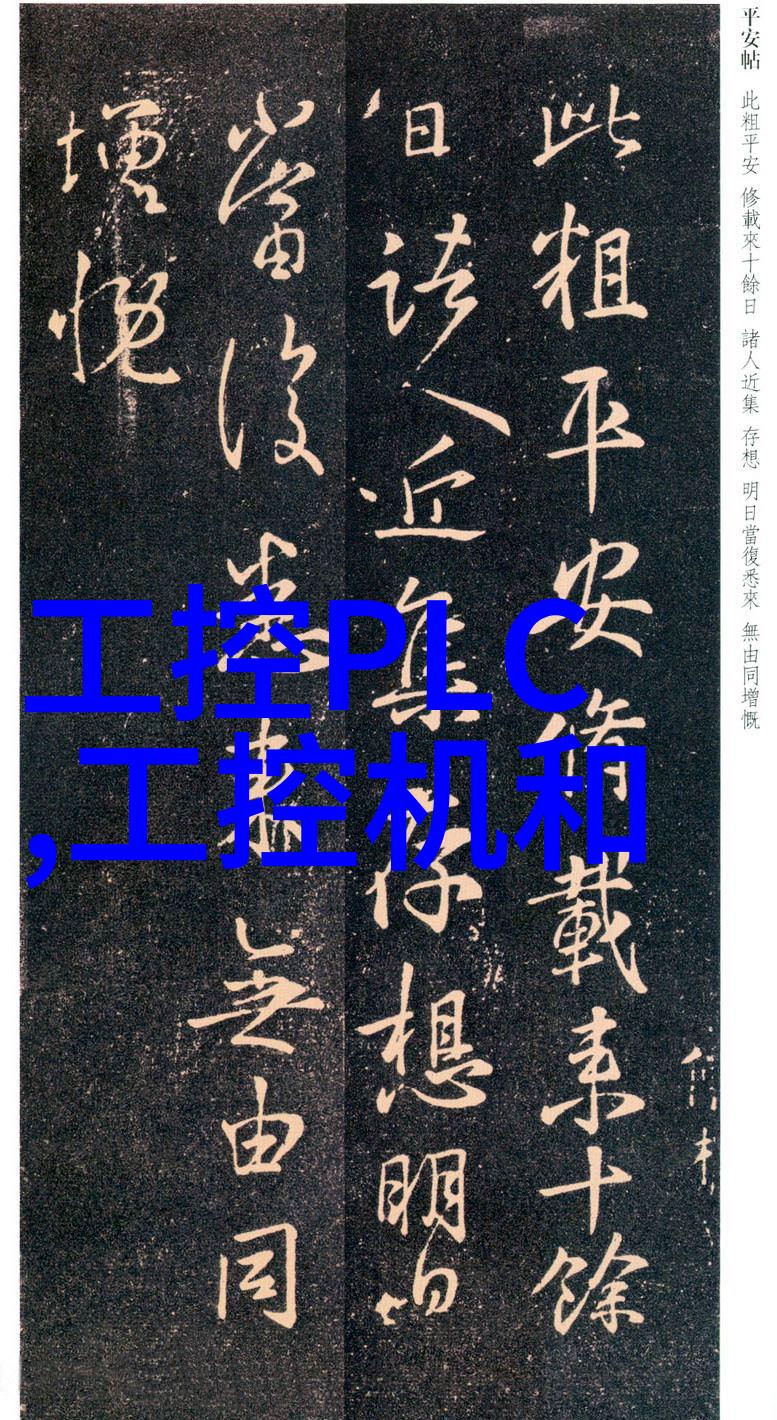 平安帖 此粗平安 修載來十餘日 諸人近集 存想 明日當復悉來 無由同增慨
此粗平安修載来十餘
日諸人近集存想明日
當復悉來無由同
增慨
工控PLC
,工控机和